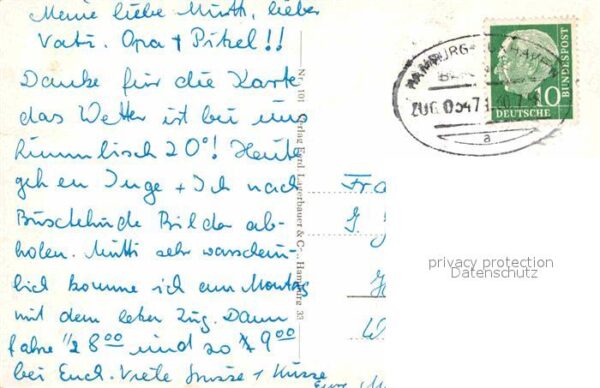 Meine liebe Mutti, lieber
Vati. Opa + Pikel!!
Danke für die Karte
das Wetter ist bei uns
himmlisch 20°! Heute
gehen Inge + Ich nach
Buxtehude Bilder ab-
holen. Mutti sehr warschein-
lich komme ich am Montag
mit dem letzten Zug. Dann
fahre 1/2 8 00 und 20 9 00
bei Euch. Viele Grüsse + Küsse
Eure
Nr. 101 Verlag Ferd. Lagerbauer & C., Hamburg 33
HAMBURG-CUXHAVEN
ZUG 0547
a
10
DEUTSCHE
BUNDESPOST
privacy protection
Datenschutz